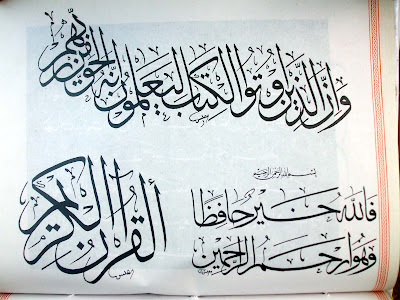 وإن الذين أوتوا الكتاب ليعلمون أنه الحق من ربهم
بسم الله الرحمن الرحيم
فالله خير حافظا
وهو أرحم الراحمين
القرآن الكريم